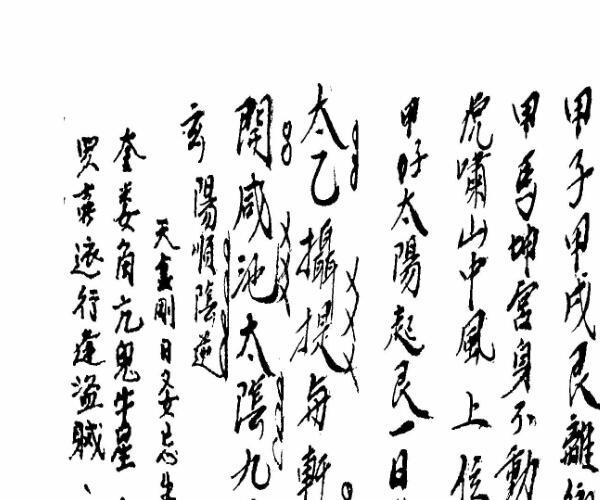 甲子甲戌艮離
甲馬坤宮身不動
虎嘯山中風上
甲子太陽起艮一日
太乙攝提每軒
閑咸池太陰九
玄陽順陰逆
天金剛日又忌
奎娄角亢鬼牛星
買賣逺行逢盜賊、